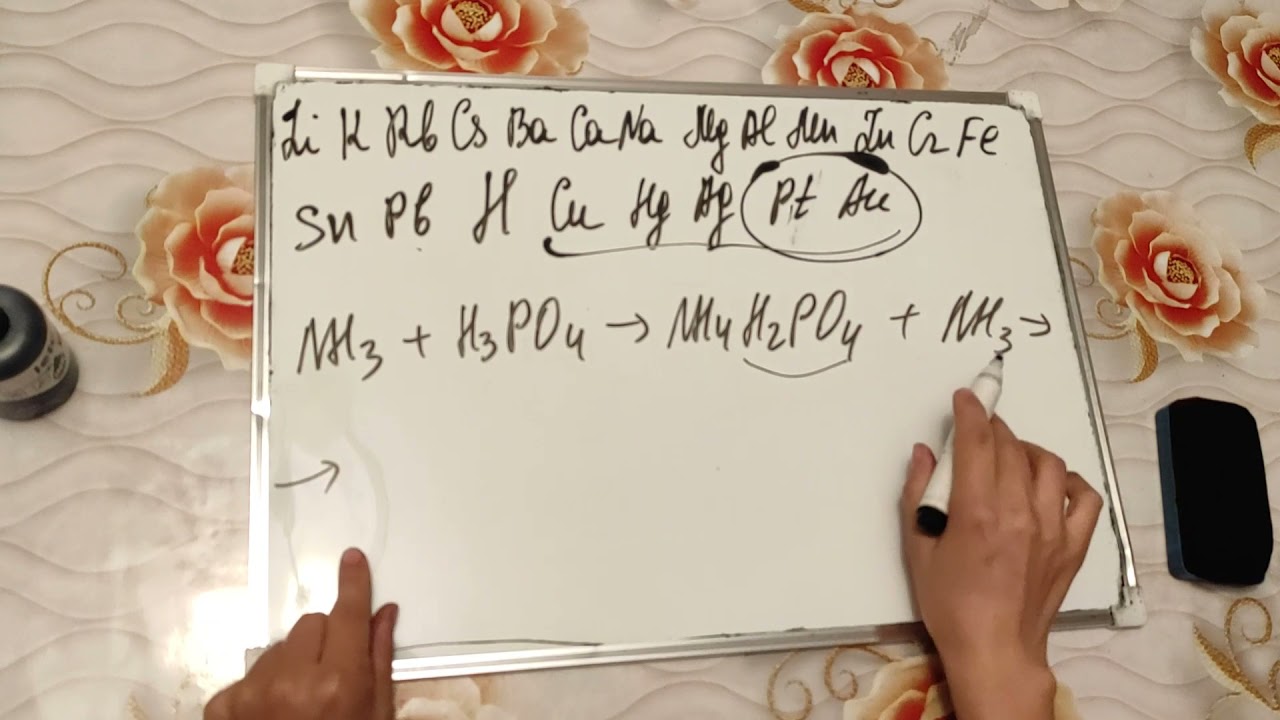 Li K Rb Cs Ba Ca Na Mg Al Mn Zn Cr Fe
Sn Pb H Cu Hg Ag Pt Au
NH3 + H3PO4 → NH4H2PO4 + NH3 →
→